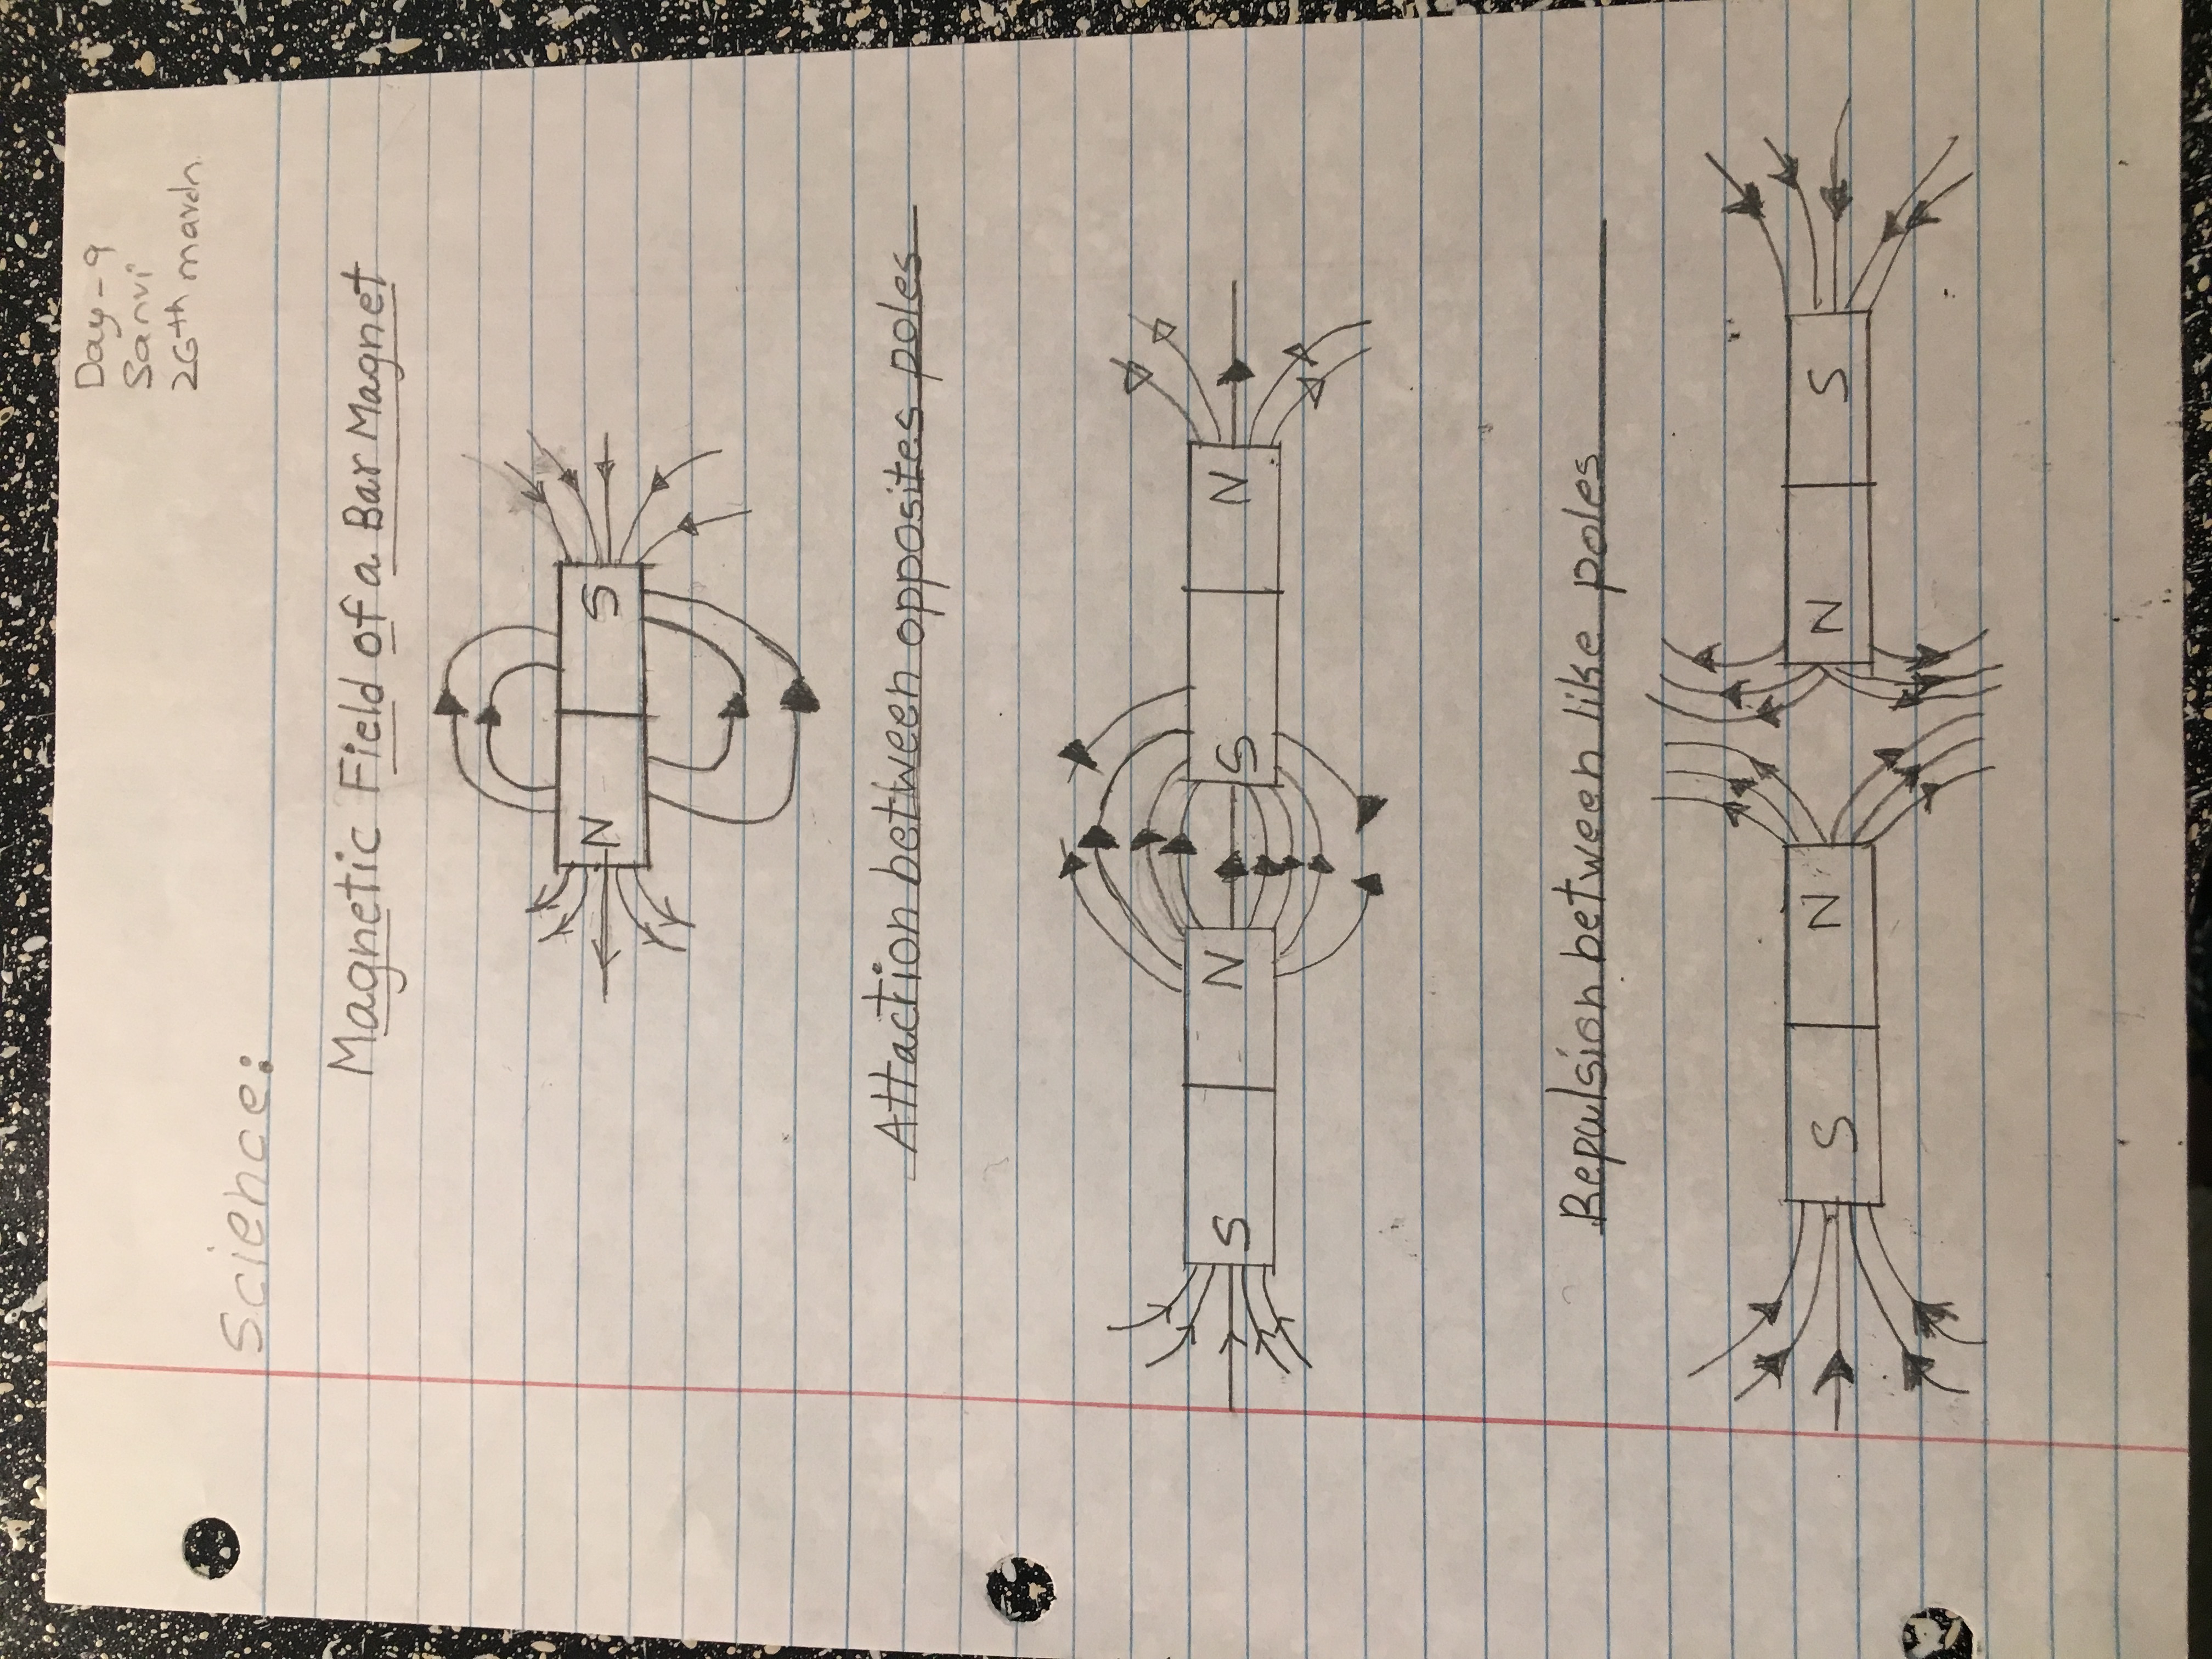 Day - 9
Sanvi
26th march
Science:
Magnetic Field of a Bar Magnet
N S
Attaction between opposites poles
S N S N
Repulsion between like poles
S N N S